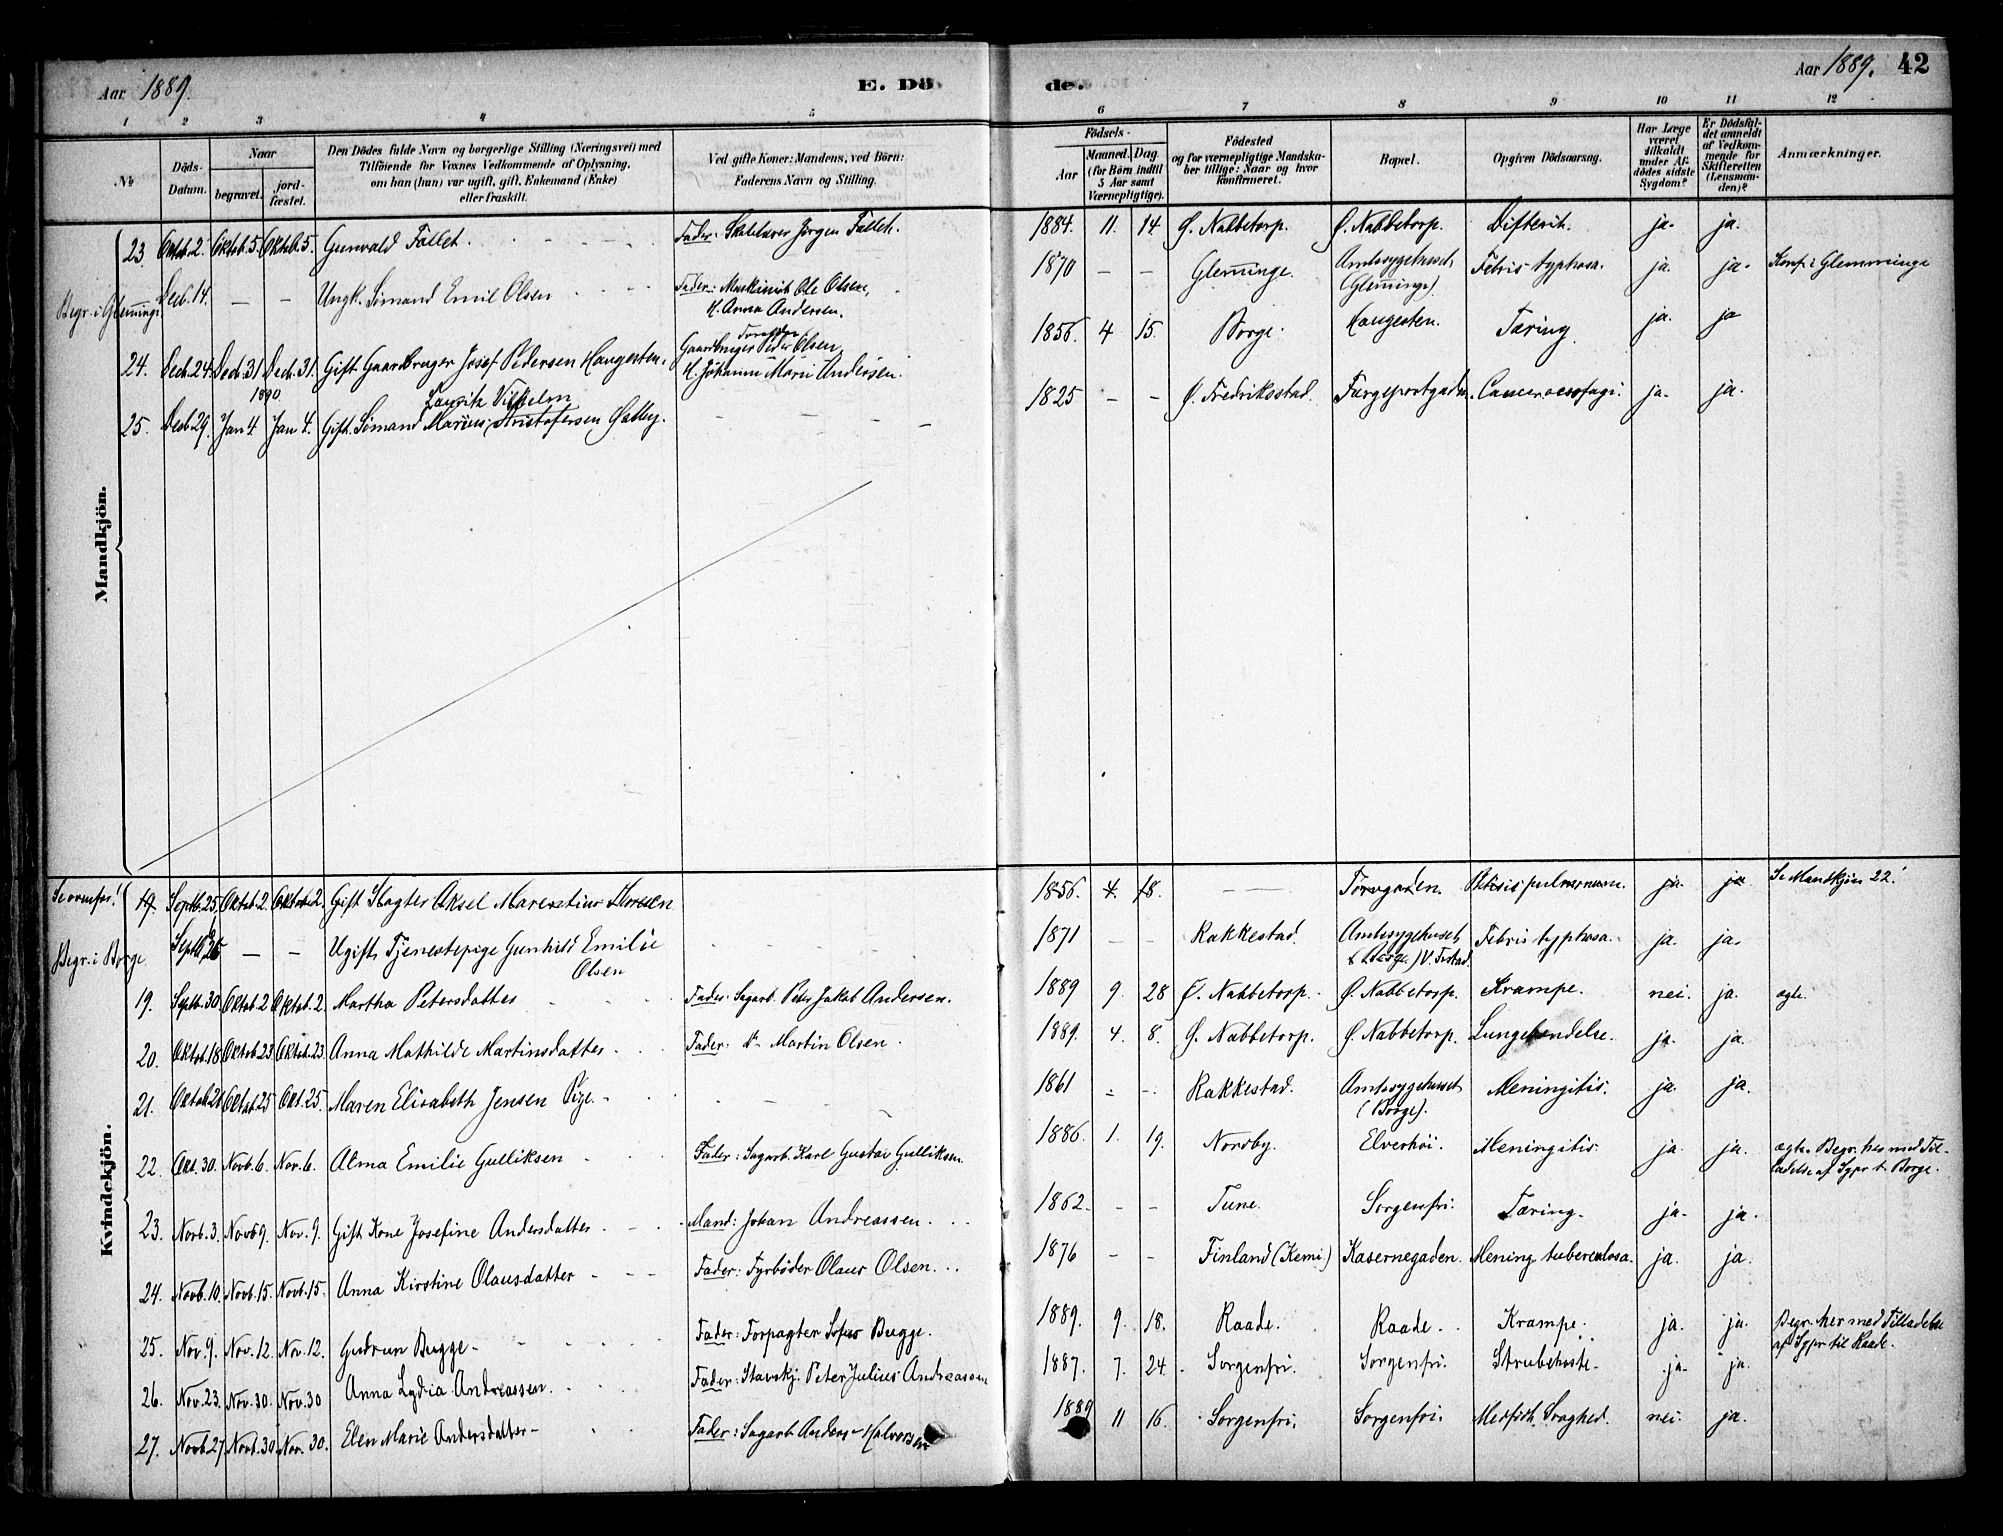 Aar 1889.
E. Dö
de.
Aar 1889. 42
1 2 3 4 5 6 7 8 9 10 11 12
No
Döds-Datum.
Naar
begravet.
jord-fæstet.
Den Dödes fulde Navn og borgerlige Stilling (Næringsvei) med
Tilföiende for Voxnes Vedkommende af Oplysning,
om han (hun) var ugift, gift, Enkemand (Enke)
eller fraskilt.
Ved gifte Koner: Mandens, ved Börn:
Faderens Navn og Stilling.
Födsels-
Aar
Maaned. Dag.
(for Börn indtil
5 Aar samt
Værnepligtige).
Födested
og for værnepligtige Mandska-
ber tillige: Naar og hvor
konfirmeret.
Bopæl.
Opgiven Dödsaarsag.
Har Læge
været
tilkaldt
under Af-
dödes sidste
Sygdom?
Er Dödsfal-
det anmeldt
af Vedkom-
mende for
Skifteretten
(Lensman-
den)?
Anmærkninger.
Mandkjön.
23. Oktob. 2. Oktob. 5. Oktob. 5. Gunvald Falleth. Fader: Jörgen Falleth. 1884. 11. 14 Ø. Nabbetorp. Ø. Nabbetorp. Difterit. ja. ja.
Begr. i Glemminge. Decb. 14. — — Ungk. Sömand Emil Olsen Fader: Maskinist Ole Olsen, 1870 — — Glemminge. Amtssygehuset Febris typhosa. ja. ja. Konf. i Glemminge
M. Anna Andersen. (Glemminge)
24. Decb. 24. Decb. 31. Decb. 31. Gift Gaardbruger Josef Pedersen Haugesten. Gaardbruger Peder Olsen, 1856. 4 15. Borge. Haugesten. Tæring. ja. ja
M. Johanne Marie Andersen.
1890 Laurits Vilhelm
25. Decb. 29. Jan 4. Jan 4. Gift. Sömand Marius Kristofersen Gatby. — — — 1825 — — Ø. Fredriksstad. Færgeportgaden. Cancer oesofagi. ja. ja.
Kvindekjön.
Se ovenfor! 19. Septb. 25. Oktob. 2. Oktob. 2. Gift Slagter Aksel Marentius 1856. 4. 18. — Torvgaden. Phtisis pulmonum. ja. ja Se Mandkjön 22!
Begr. i Borge Septb. 26 — — Ugift Tjenestepige Gunhild Emilie 1871 — — Rakkestad. Amtssygehuset Febris typhosa. ja. ja.
Olsen
19. Septb. 30. Oktob. 2 Oktob. 2. Martha Petersdatter Fader: Sagarb. Peter Jakob Andersen. 1889 9. 28 Ø. Nabbetorp. Ø. Nabbetorp. Krampe. nei. ja. ægte.
20. Oktob. 18. Oktob. 23 Oktob. 23. Anna Mathilde Martinsdatter Fader: do Martin Olsen. 1889. 4. 8. Ø. Nabbetorp. Ø. Nabbetorp. Lungebendelse. ja. ja.
21. Oktob. 21 Oktob. 25 Okt. 25. Maren Elisabeth Jensen Pige. 1861 — — Rakkestad. Amtssygehuset Meningitis. ja. ja.
(Borge).
22. Okt. 30. Novb. 6. Nov. 6. Alma Emilie Gulliksen Fader: Sagarb. Karl Gustav Gulliksen 1886. 1. 19. Nordby. Elverhöi. Meningitis. ja. ja. ægte. Begr. her med Til-
ladelse af Sgpr. t. Borge.
23. Novb. 3. Novb. 9. Nov. 9. Gift Kone Josefine Andersdatter Mand: Johan Andreassen. 1862. — — Tune. Sorgenfri. Tæring. ja. ja.
24. Novb. 10. Novb. 15. Novb. 15. Anna Kirstine Olausdatter Fader: Fyrböder Olaus Olsen. 1876 — — Finland (Kemi.) Kasernegaden. Mening. tuberculosa. ja. ja.
25. Nov. 9. Nov. 12. Nov. 12. Gudrun Bugge Fader: Forpagter Sofus Bugge. 1889. 9. 18. Raade. Raade. Krampe. ja. ja. Begr. her med Tilladelse
af Sgpr til Raade.
26. Nov. 23. Nov. 30. Nov. 30 Anna Lydia Andreassen. Fader: Stavskj. Peter Julius Andreassen 1887. 7. 24. Sorgenfri. Sorgenfri. Strubehoste. ja. ja.
27. Novb. 27 Novb. 30. Nov. 30. Elen Marie Andersdatter Fader: Sagarb. Anders Halvorsen 1889 11 16. Sorgenfri. Sorgenfri. Medfödt Svaghed. nei. ja.